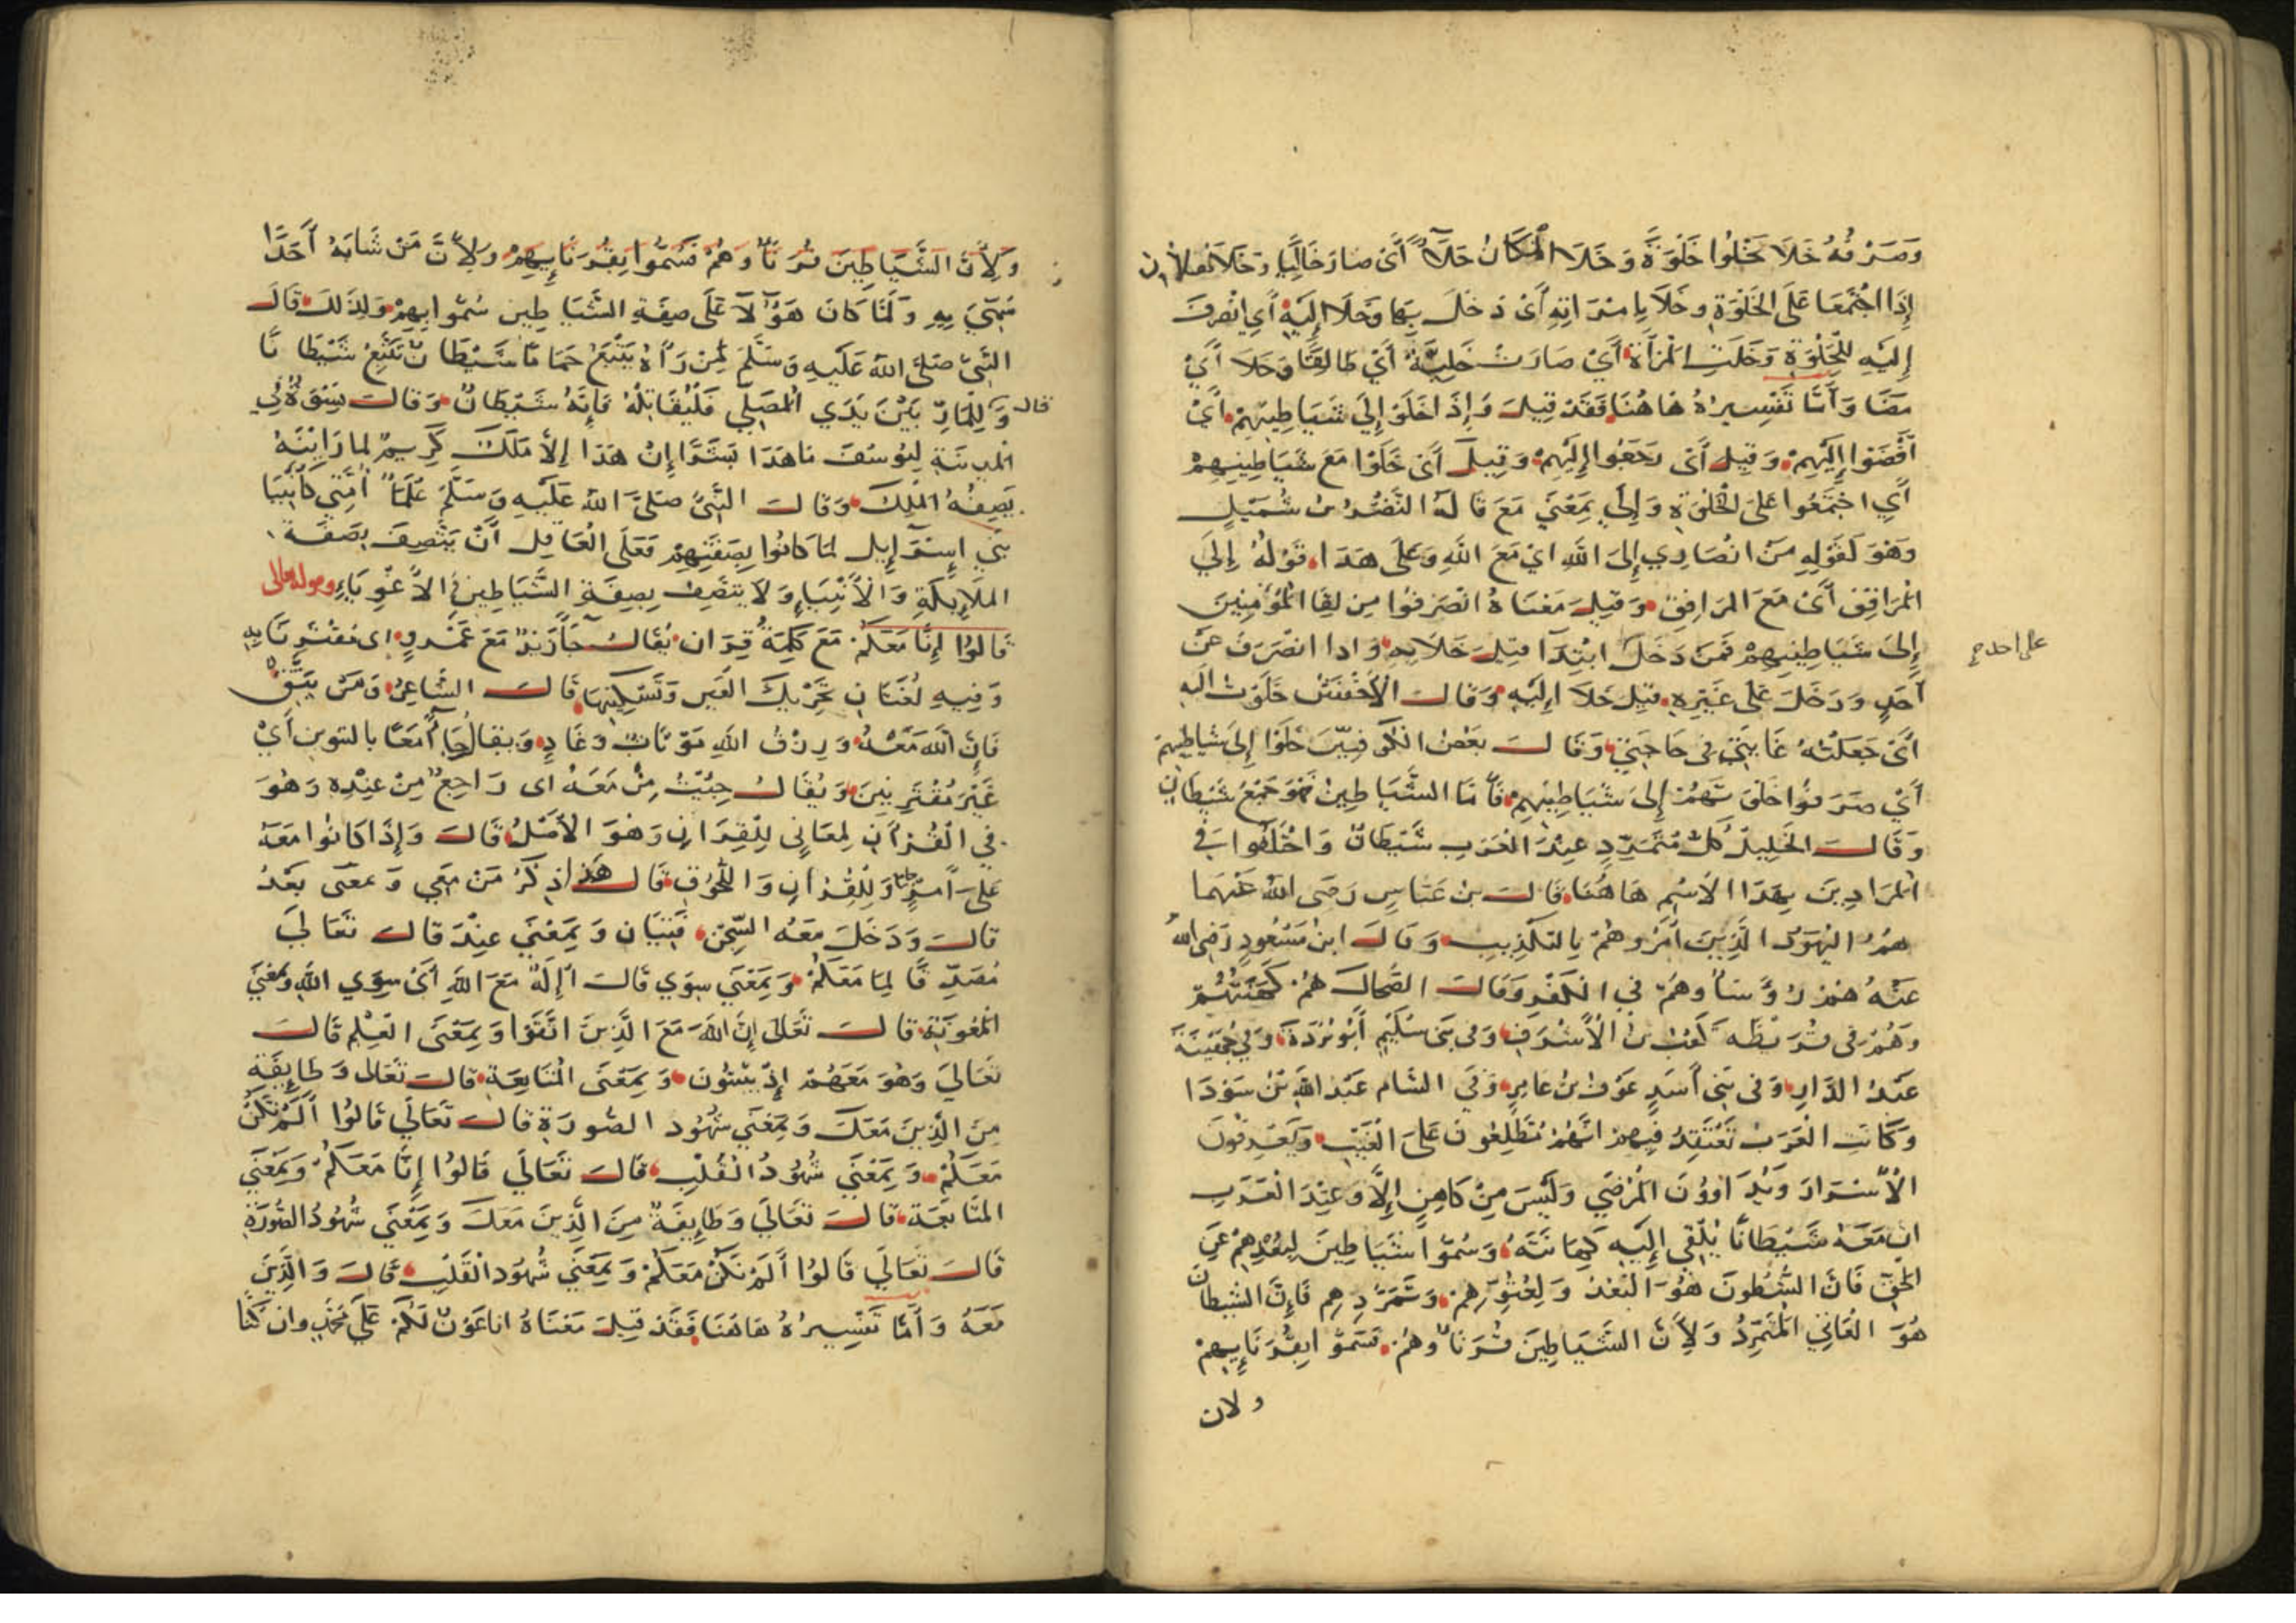 وَصَرْفُهُ خَلَا يَخْلُوا خَلْوَةً وَخَلَا المكَانُ خَلَآءً أَيْ صَارَ خَالِيًا وَخَلَا
إِذَا اجْتَمَعَا عَلَى الخَلْوَةِ وخَلَا بِامْرَاتِهِ أَيْ دَخَلَ بِهَا وَخَلَا إِلَيْهِ أَيِ انْصَرَفَ
إِلَيْهِ لِلْخَلْوَةِ وَخَلَتِ المرْأَةُ أَيْ صَارَتْ خَلِيَّةً أَيْ طَالِقًا وَخَلَا أَيْ
مَضَا وَأَمَّا تَفْسِيرُهُ هَاهُنَا فَقَدْ قِيلَ وَإِذَا خَلَوْ إِلَى شَيَاطِينِهِمْ أَيْ
أَفْضَوْا إِلَيْهِمْ وَقِيلَ أَيْ رَجَعُوا إِلَيْهِمْ وَقِيلَ أَيْ خَلَوْا مَعَ شَيَاطِينِهِمْ
أَيِ اجْتَمَعُوا عَلَى الخَلْوَةِ وَإِلَى بِمَعْنَى مَعَ قَالَهُ النَّضْرُ بْنُ شُمَيْلٍ
وَهْوَ لَقَوْلِهِ مَنْ انْصَارِي إِلَى اللَّهِ ايْ مَعَ اللَّهِ وَعَلَى هَذَا قَوْلُهُ إِلَى
المَرَافِقِ أَيْ مَعَ المَرَافِقِ وَقِيلَ مَعْنَاهُ انْصَرَفُوا مِن لِقَا المُؤْمِنِينَ
إِلَى شَيَاطِينِهِمْ فَمَنْ دَخَلَ ابْتِدَآ قِيلَ خَلَا بِهِ وَاذا انْصَرَفَ عَنْ
على احد صح
أحَدٍ وَدَخَلَ عَلَى غَيْرِهِ قِيلَ خَلَا إِلَيْهِ وَقَالَ الأَخْفَشُ خَلَوْتُ الَيْهِ
أَيْ جَعَلْتُهُ غَايَتِي فِي حَاجَتِي وَقَالَ بَعْضُ خَلَوْا إِلَى شَيَاطِينِهِمْ
أَيْ صَرَفُوا خَلْوَتَهُمْ إِلَى شَيَاطِينِهِمْ فَأَمَّا الشَّيَاطِينُ فَهُوَ جَمْعُ شَيْطَانٍ
وَقَالَ الخَلِيلُ كُلُّ مُتَمَرِّدٍ عِنْدَ العَرَبِ شَيْطَانٌ وَاخْتَلَفُوا فِي
المُرَادِينَ بِهَذَا الاسْمِ هَاهُنَا قَالَ بن عَبَّاسٍ رَضِيَ اللهُ عَنْهُمَا
هُمُ اليَهُودُ الَّذِينَ أَمَرُوهُمْ بِالتَّكْذِيبِ وَقَالَ ابنُ مَسْعُودٍ رَضِيَ اللهُ
عَنْهُ هُمْ رُؤَسَاؤُهُمْ فِي الكُفْرِ وَقَالَ الضَّحَّاكُ هُمْ كَهَنَتُهُمْ
وَهُمْ فِي قُرَيْظَه كَعْبُ بنُ الأَشْرَفِ وَفِي بَنِي سُلَيْمٍ أَبُو بُرْدَةَ وَفِي جُهَيْنَةَ
عَبْدُ الدَّارِ وَفِي بَنِي أَسَدٍ عَوْفُ بْنُ عَامِرٍ وَفِي الشَّام عَبْدُ اللَّهِ بْنُ سَوْدَا
وَكَانَتِ العَرَبُ تَعْتَقِدُ فِيهِمْ انَّهُمْ مُطَّلِعُونَ عَلَى الغَيْبِ وَيَعْرِفُونَ
الأَسْرَارَ وَيُدَاوُونَ المَرْضَى وَلَيْسَ مِنْ كَاهِنٍ إِلَّا وَعِنْدَ العَرَبِ
انَّ مَعَهُ شَيْطَانًا يُلْقِي إِلَيْهِ كَهَانَتَهُ وَسُمُّوا شَيَاطِينَ لِبُعْدِهِمْ عَنِ
الحَقِّ فَانَّ الشُّطُونَ هُوَ البُعْدُ وَلِعُتُوِّهِمْ وَتَمَرُّدِهِم فَإِنَّ الشَّيْطَانَ
هُوَ العَاتِي المُتَمَرِّدُ وَلِأَنَّ الشَّيَاطِينَ قُرَنَاؤُهُمْ فَسُمُّوا بِقُرَنَائِهِمْ
ولان
وَلِأَنَّ الشَّيَاطِينَ قُرَنَاؤُهُمْ فَسُمُّوا بِقُرَنَائِهِمْ وَلِأَنَّ مَنْ شَابَهَ أَحَدًا
سُمِّيَ بِهِ وَلَمَّا كَانَ هَؤُلَآءِ عَلَى صِفَةِ الشَّيَاطِينِ سُمُّوا بِهِمْ وَلِذَلِكَ قَالَ
النَّبِيُّ صَلَّى اللهُ عَلَيْهِ وَسَلَّمَ لِمَنْ رَآهُ يَتْبَعُ حَمَامًا شَيْطَانٌ يَتْبَعُ شَيْطَانًا
قال
وَلِلْمَارِّ بَيْنَ يَدَيِ المُصَلِّي فَلْيُقَاتِلْهُ فَإِنَّهُ شَيْطَانٌ وَقَالَ نِسْوَةٌ فِي
المَدِينَةِ لِيُوسُفَ مَا هَذَا بَشَرًا إِنْ هَذَا إِلاَّ مَلَكٌ كَرِيمٌ لِمَا رَايْنَهُ
بِصِفَهُ المَلَكِ وَقَالَ النَّبِيُّ صَلَّى اللهُ عَلَيْهِ وَسَلَّمَ عُلَمَاءُ أُمَّتِي كَأَنْبِيَا
بَنِي إِسْرَآئِيلَ لمَا كَانُوا بِصِفَتِهِمْ فَعَلَى العَاقِلِ أَنْ يَتَّصِفَ بِصِفَةِ
المَلَائِكَةِ وَالأَنْبِيَاءِ وَلَا يَتَّصِفَ بِصِفَةِ الشَّيَاطِينِ الأَغْوِيَاءِ وقوله تعالى
قَالُوا إِنَّا مَعَكُمْ مَعَ كَلِمَةُ قِرَان يُقَالُ جَآءَ زَيْدٌ مَعَ عَمْرٍو اى مُقْتَرِنًا بِهِ
وَفِيهِ لُغَتَانِ تَحْرِيكُ العَيْنِ وَتَسْكِينُهَا قَالَ الشَّاعِرُ وَمَنْ يَتَّقْ
فَإِنَّ اللَّهَ مَعْهُ وَرِزْقُ اللَّهِ مُؤْتَابٌ وَغَادٍ وَيُقَالُ جَآءَا مَعًا بالتنوين أَيْ
غَيْرَ مُفْتَرِقِينَ وَيُقَالُ جِئْتُ مِنْ مَعَهُ اى رَاجِعٌ مِنْ عِنْدِهِ وَهْوَ
فِي القُرْآنِ لِمَعَانِي لِلْقِرَانِ وَهْوَ الأَصْلُ قَالَ وَإِذَا كَانُوا مَعَهُ
عَلَى أَمْرٍ جَامِعٍ وَلِلْقُرْآنِ وَاللُّحُوقِ قَالَ هَذَا ذِكْرُ مَنْ مَعِي وَمَعْنَى بَعْدُ
قَالَ وَدَخَلَ مَعَهُ السِّجْنَ فَتَيَان وَبِمَعْنَى عِنْدَ قَالَ تَعَالَى
مُصَدِّقًا لِمَا مَعَكُمْ وَبِمَعْنَى سِوَى قَالَ أَإِلَهٌ مَعَ اللَّهِ أَيْ سِوَى اللَّهِ وَبِمَعْنَى
المَعُونَةِ قَالَ تَعَالَى إِنَّ اللَّهَ مَعَ الَّذِينَ اتَّقَوْا وَبِمَعْنَى العِلْمِ قَالَ
تَعَالَى وَهْوَ مَعَهُمْ إِذْ يُبَيِّتُونَ وَبِمَعْنَى المُتَابَعَةِ قَالَ تَعَالَى وَطَائِفَةٌ
مِنَ الَّذِينَ مَعَكَ وَبِمَعْنَى شُهُودِ الصُّورَةِ قَالَ تَعَالَى قَالُوا أَلَمْ نَكُنْ
مَعَكُمْ وَبِمَعْنَى شُهُودُ القَلْبِ قَالَ تَعَالَى قَالُوا إِنَّا مَعَكُمْ وَبِمَعْنَى
المُتَابَعَةِ قَالَ تَعَالَى وَطَائِفَةٌ مِنَ الَّذِينَ مَعَكَ وَبِمَعْنَى شُهُودُ الصُّورَةِ
قَالَ تَعَالَى قَالُوا أَلَمْ نَكُنْ مَعَكُمْ وَبِمَعْنَى شُهُودِ القَلْبِ قَالَ وَالَّذِينَ
مَعَهُ وَأَمَّا تَفْسِيرُهُ هَاهُنَا فَقَدْ قِيلَ مَعْنَاهُ انا عَوْنٌ لَكُمْ عَلَى مُحَمَّدٍ وان كُنَّا